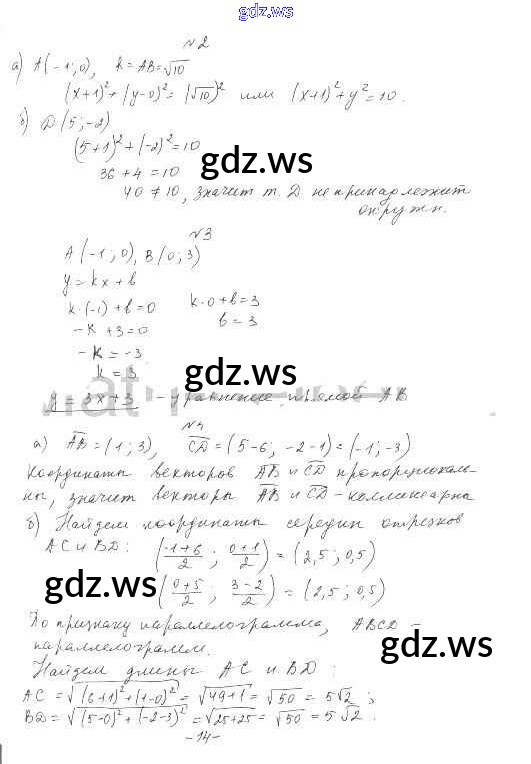 gdz.ws
№2
а) A(-1;0), R = AB = √10
(x+1)² + (y-0)² = (√10)² или (x+1)² + y² = 10.
б) D(5;-2)
(5+1)² + (-2)² = 10
gdz.ws
36 + 4 = 10
40 ≠ 10, значит т. D не принадлежит
окружн.
№3
A(-1;0), B(0;3)
y = kx + b
k·(-1) + b = 0 k·0 + b = 3
-k + 3 = 0 b = 3
-k = -3
k = 3
gdz.ws
y = 3x+3 - уравнение прямой AB
№4
а) AB = (1;3), CD = (5-6; -2-1) = (-1;-3)
Координаты векторов AB и CD пропорциональ-
ны, значит векторы AB и CD - коллинеарны
б) Найдем координаты середин отрезков
AC и BD: ((-1+6)/2 ; (0+1)/2) = (2,5; 0,5)
gdz.ws
((0+5)/2 ; (3-2)/2) = (2,5; 0,5)
По признаку параллелограмма, ABCD -
параллелограмм.
gdz.ws
Найдем длины AC и BD:
AC = √((6+1)² + (1-0)²) = √(49+1) = √50 = 5√2;
BD = √((5-0)² + (-2-3)²) = √(25+25) = √50 = 5√2.
-14-